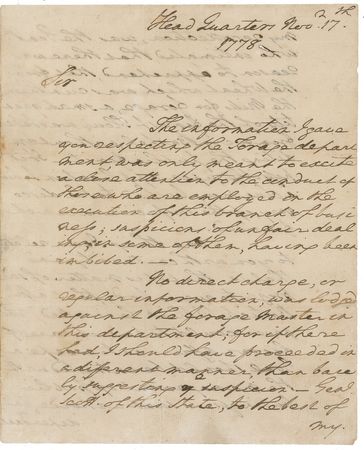 Head Quarters Nov.r 17.th
1778—
Sir
The information I gave
you respecting the Forage depart
ment was only meant to excite
a close attention to the conduct of
those who are employed in the
execution of this branch of busi
ness; suspicions of unfair deal
ing in some of them, having been
imbibed.—
No direct charge, or
regular information, was lodged
against the forage Master in
this department; for if there
had, I should have proceeded in
a different manner than bare
ly suggesting a suspicion.— Genl
Scott of this State, to the best of
my.